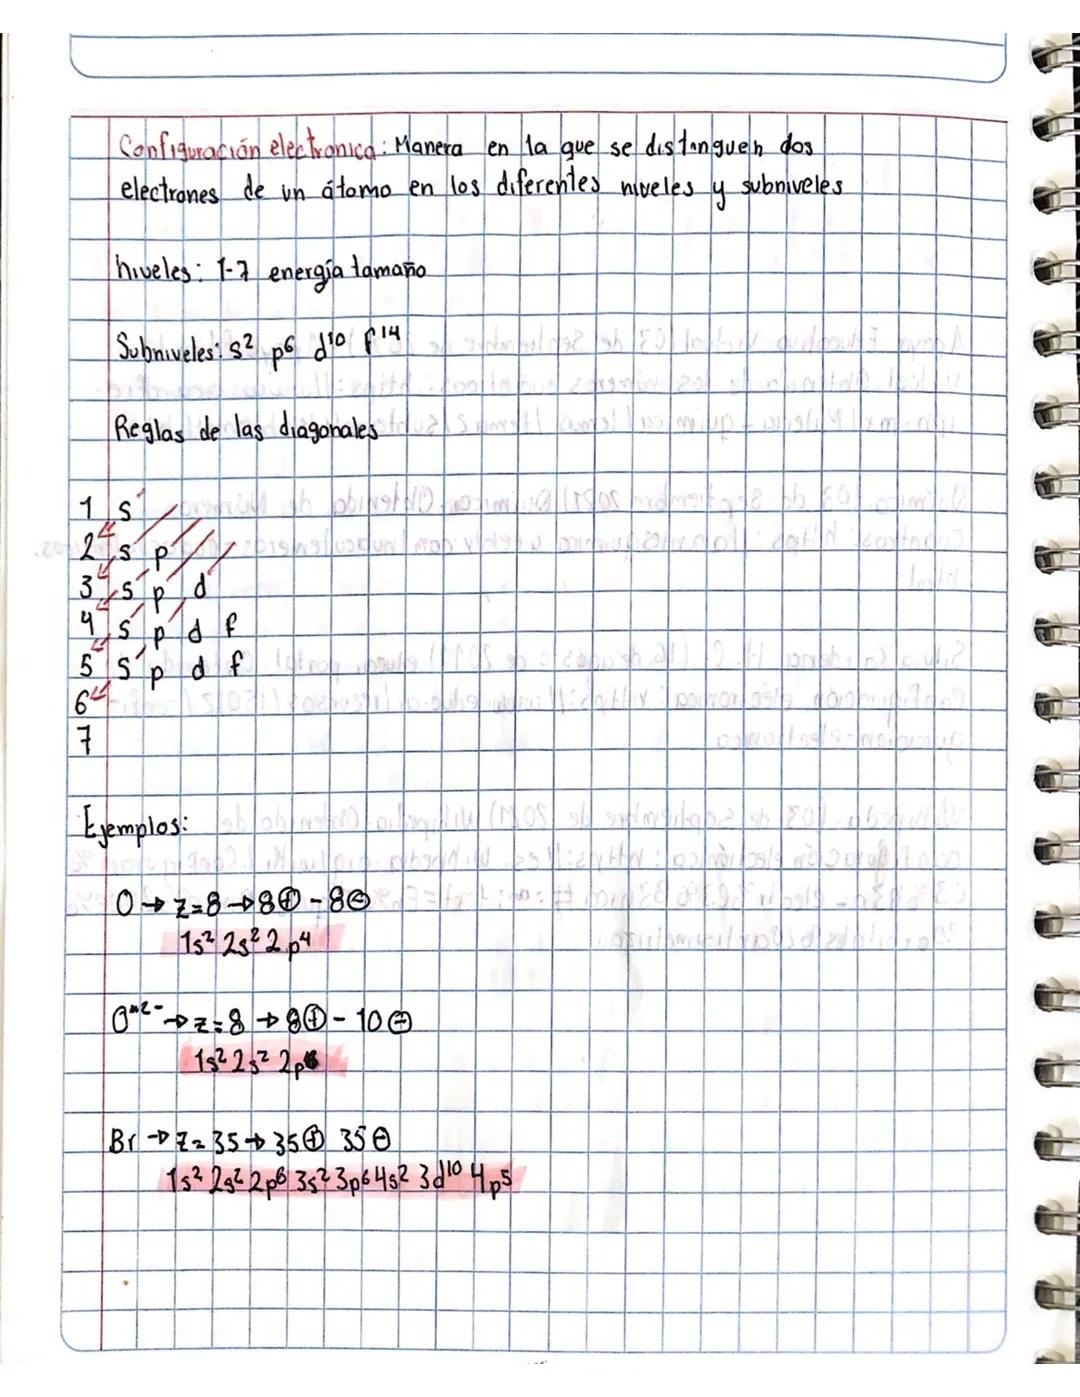 Configuración electronica: Manera en la que se distinguen dos
electrones de un átomo en los diferentes niveles y subniveles
niveles: 1-7 energía tamaño
Subniveles: s² p⁶ d¹⁰ f¹⁴
Reglas de las diagonales
1 s
2 s p
3 s p d
4 s p d f
5 s p d f
6
7
Ejemplos:
O → z=8 → 8⊕ - 8⊖
1s² 2s² 2p⁴
z=8 → 8⊕ - 10⊖
1s² 2s² 2p⁶
Br → z=35 → 35⊕ 35⊖
1s² 2s² 2p⁶ 3s² 3p⁶ 4s² 3d¹⁰ 4p⁵